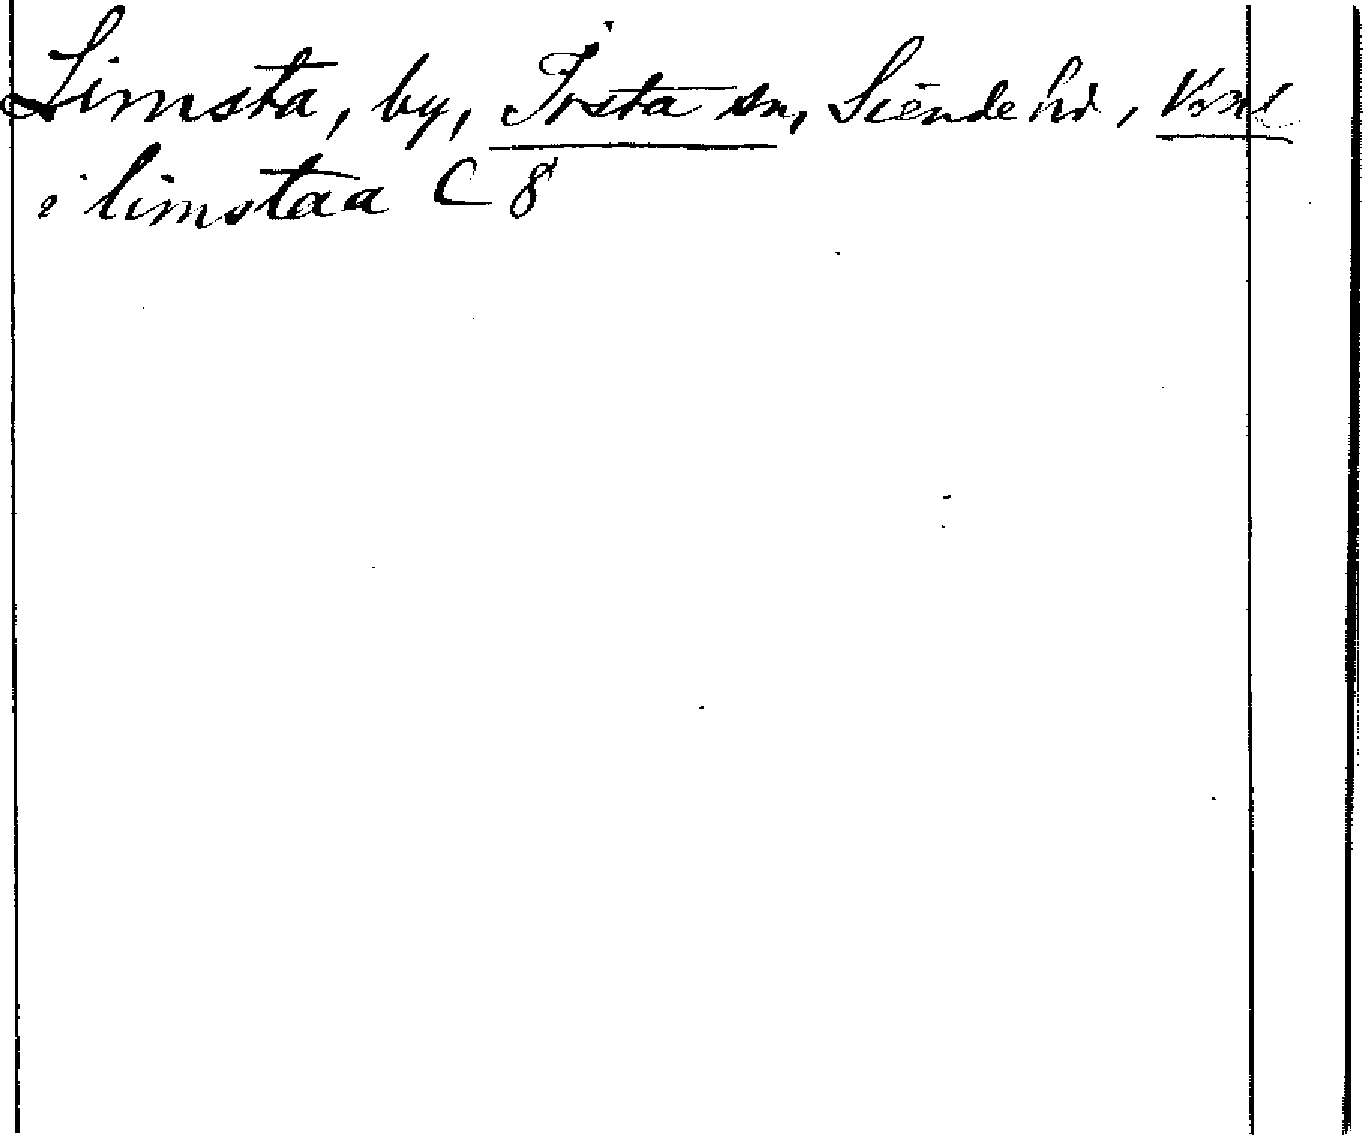 Limsta, by, Irsta sn, Siende hd, Vsml
i limstaa C 8